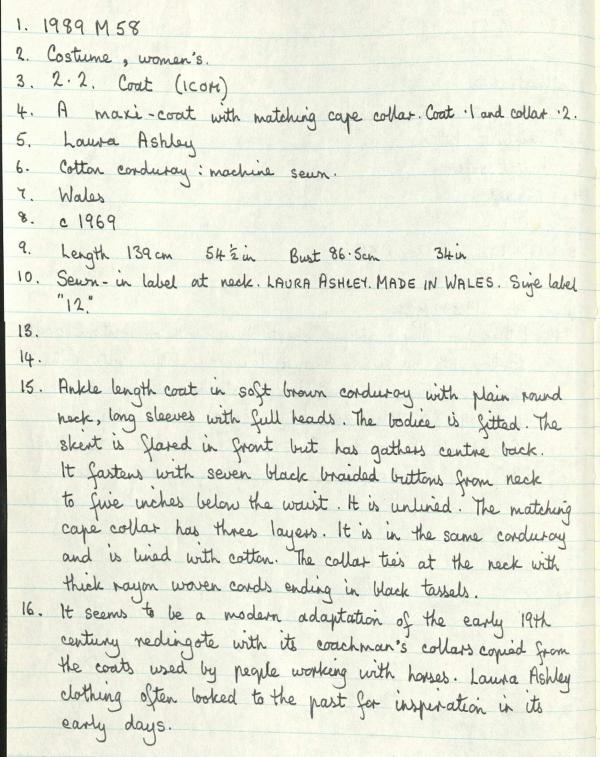 1. 1989 M 58
2. Costume, women's.
3. 2.2. Coat (ICOM)
4. A maxi-coat with matching cape collar. Coat .1 and collar .2.
5. Laura Ashley
6. Cotton corduroy : machine sewn.
7. Wales
8. c 1969
9. Length 139cm 54½in Bust 86.5cm 34in
10. Sewn-in label at neck. LAURA ASHLEY. MADE IN WALES. Size label
"12."
13.
14.
15. Ankle length coat in soft brown corduroy with plain round
neck, long sleeves with full heads. The bodice is fitted. The
skirt is flared in front but has gathers centre back.
It fastens with seven black braided buttons from neck
to five inches below the waist. It is unlined. The matching
cape collar has three layers. It is in the same corduroy
and is lined with cotton. The collar ties at the neck with
thick rayon woven cords ending in black tassels.
16. It seems to be a modern adaptation of the early 19th
century redingote with its coachman's collars copied from
the coats used by people working with horses. Laura Ashley
clothing often looked to the past for inspiration in its
early days.